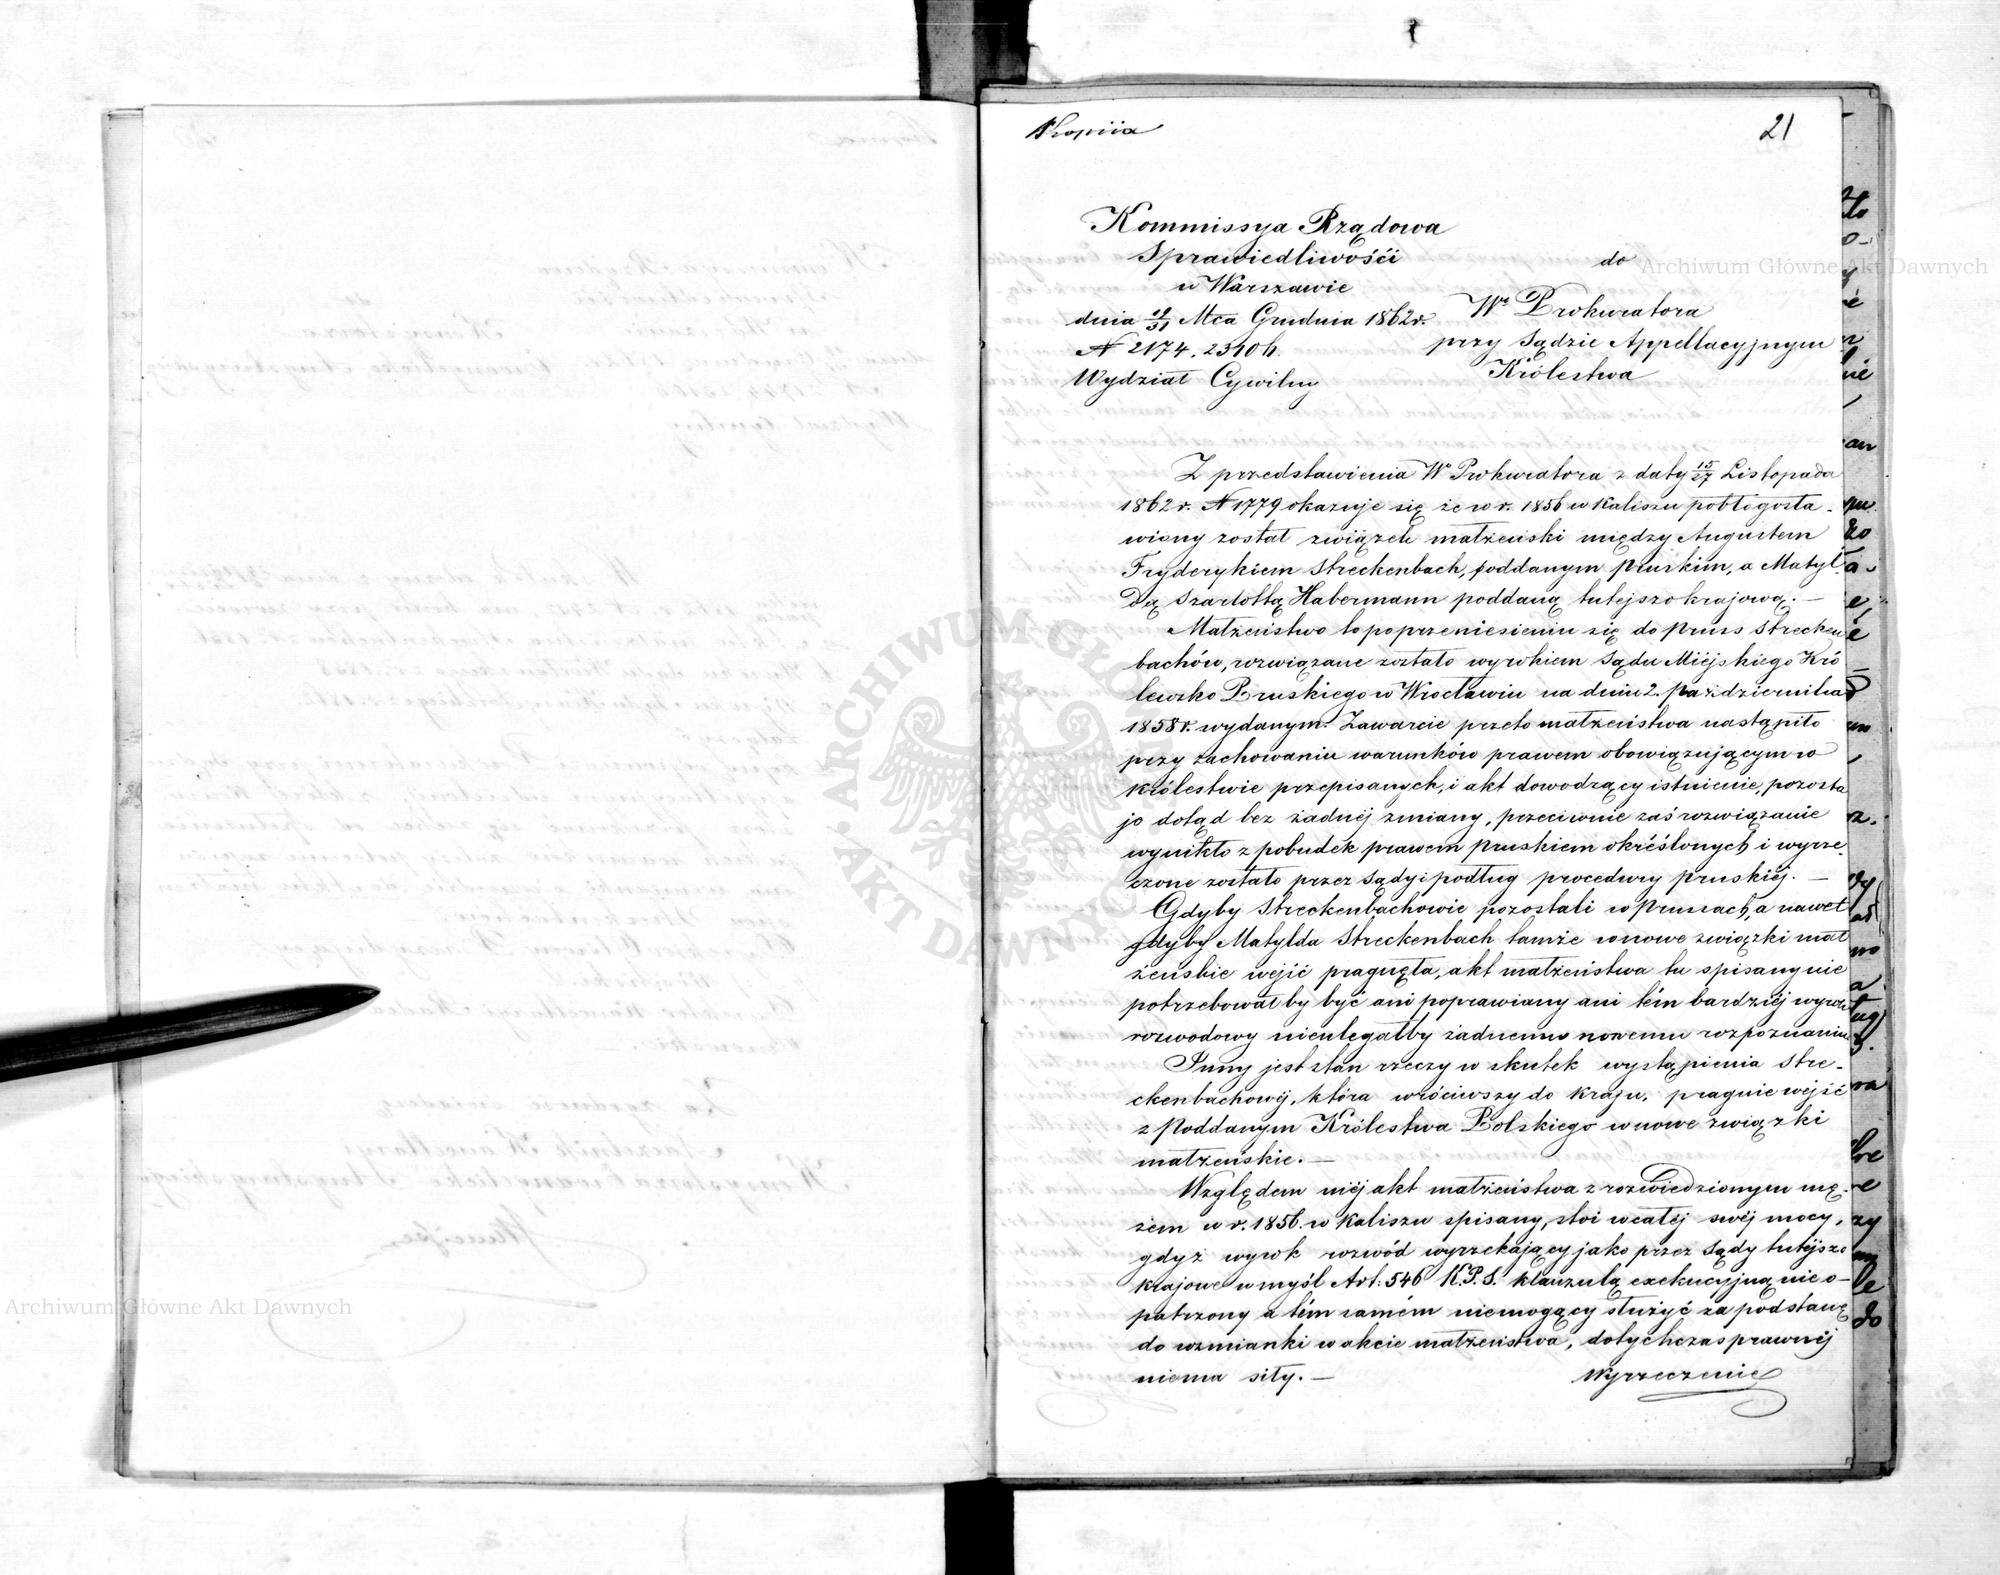 Kopiia
21
Kommissya Rządowa
Sprawiedliwości
w Warszawie
dnia 19/31 Mca Grudnia 1862r.
N 2174. 2310h.
Wydział Cywilny
do
Wo Prokuratora
przy Sądzie Appellacyjnym
Królestwa
Z przedstawienia Wo Prokuratora z daty 15/27 Listopada
1862 r. N 1779 okazuje się że w r. 1856 w Kaliszu pobłogosła-
wiony został związek małżeński między Augustem
Fryderykiem Streckenbach, poddanym pruskim, a Matyl-
dą Szarlottą Habermann poddaną tutejszo krajową. —
Małżeństwo to po przeniesieniu się do Pruss Strecken
bachów, rozwiązane zostało wyrokiem Sądu Miejskiego Kró
lewsko Pruskiego w Wrocławiu na dniu 2. października
1858 r. wydanym. Zawarcie przeto małżeństwa nastąpiło
przy zachowaniu warunków prawem obowiązującym w
Królestwie przepisanych, i akt dowodzący istnienie, pozosta
je dotąd bez żadnej zmiany, przeciwnie zaś rozwiązanie
wynikło z pobudek prawem pruskiem określonych i wyrze-
czone zostało przez Sądy i podług procedury pruskiej. —
Gdyby Streckenbachowie pozostali w Prusach, a nawet
gdyby Matylda Streckenbach tamże w nowe związki mał
żeńskie wejść pragnęła, akt małżeństwa tu spisany nie
potrzebowałby być ani poprawiany ani tém bardziéj wyrok
rozwodowy nieulegałby żadnemu nowemu rozpoznaniu.
Inny jest stan rzeczy w skutek wystąpienia Stre-
ckenbachowéj, która wróciwszy do kraju, pragnie wejść
z Poddanym Królestwa Polskiego w nowe związki
małżeńskie. —
Względem niéj akt małżeństwa z rozwiedzionym mę-
żem w r. 1856. w Kaliszu spisany, stoi w całéj swéj mocy,
gdyż wyrok rozwód wyrzekający jako przez Sądy tutejszo
krajowe w myśl Art: 546 K.P.S. klauzulą exekucyjną nie o-
patrzony a tém samém niemogący służyć za podstawę
do wzmianki w akcie małżeństwa, dotychczas prawnéj
niema siły. —
Wyrzeczenie
Archiwum Główne Akt Dawnych
Archiwum Główne Akt Dawnych
ARCHIWUM GŁÓWNE AKT DAWNYCH